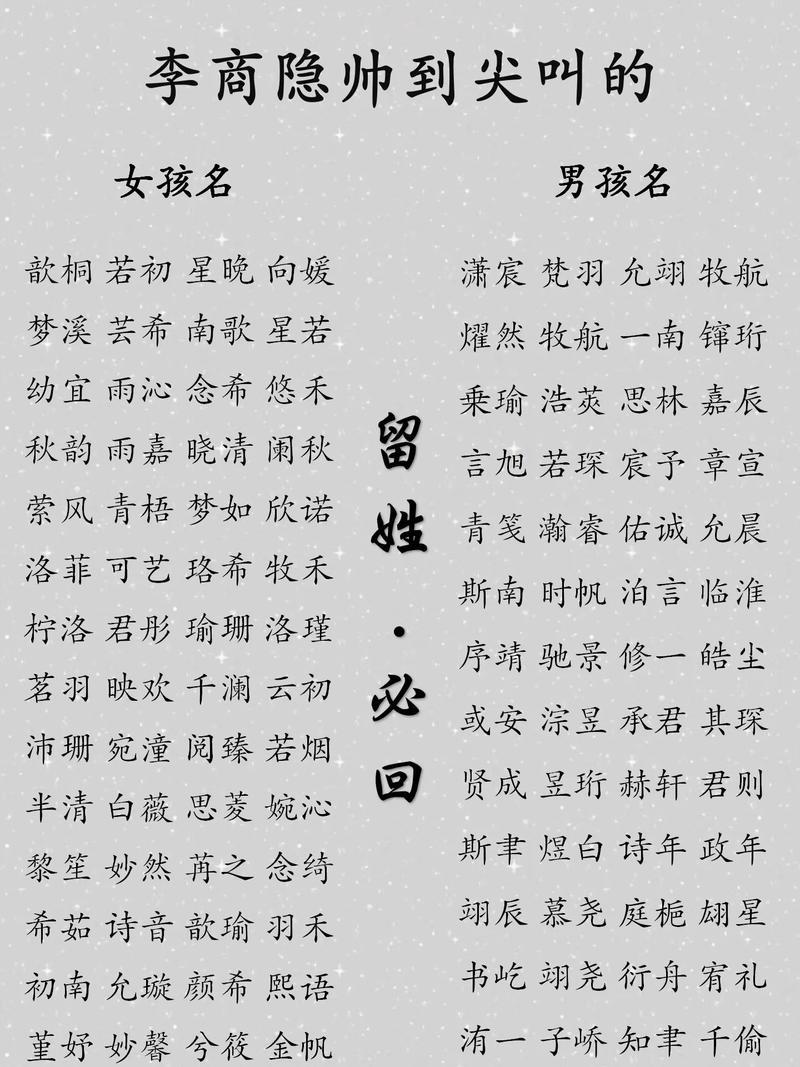 李商隐帅到尖叫的
女孩名
歆桐 若初 星晚 向媛
梦溪 芸希 南歌 星若
幼宜 雨沁 念希 悠禾
秋韵 雨嘉 晓清 阑秋
萦风 青梧 梦如 欣诺
洛菲 可艺 珞希 牧禾
柠洛 君彤 瑜珊 洛瑾
茗羽 映欢 千澜 云初
沛珊 宛潼 阅臻 若烟
半清 白薇 思菱 婉沁
黎笙 妙然 苒之 念绮
希茹 诗音 歆瑜 羽禾
初南 允璇 颜希 熙语
堇妤 妙馨 兮筱 金帆
留姓·必回
男孩名
潇宸 梵羽 允翊 牧航
燿然 牧航 一南 镩珩
乘瑜 浩荧 思林 嘉辰
言旭 若琛 宸予 章宣
青笺 瀚睿 佑诚 允晨
斯南 时帆 泊言 临淮
序靖 驰景 修一 皓尘
或安 淙昱 承君 其琛
贤成 昱珩 赫轩 君则
斯聿 煜白 诗年 政年
翊辰 慕尧 庭栀 翃星
书屹 翊尧 衍舟 宥礼
洧一 子峤 知聿 千偷